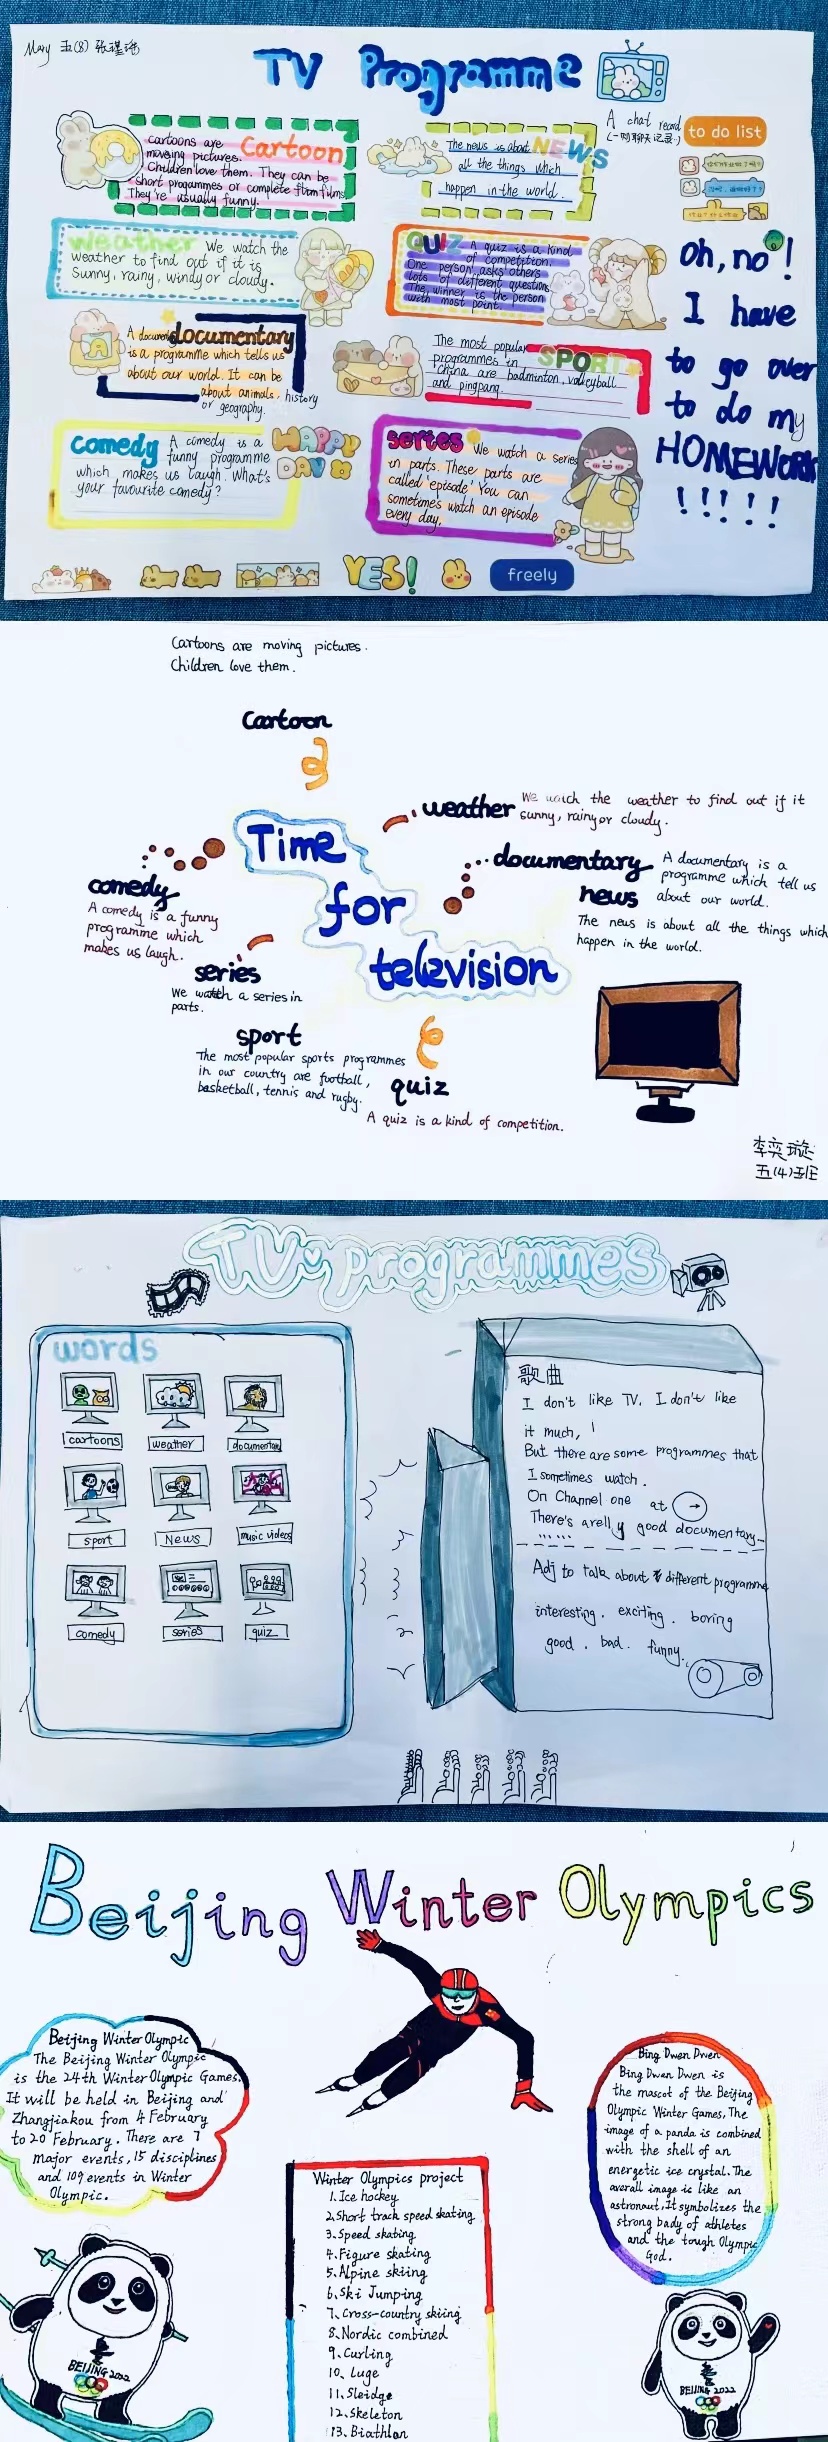 Mary 五(8) 张瑾瑶
TV Programme
A chat record
(一则聊天记录)
to do list
cartoons are
Cartoon
moving pictures.
Children love them. They can be
short progammes or complete films
They're usually funny.
The news is about
NEWS
all the things which
happen in the world.
weather We watch the
weather to find out if it is
Sunny, rainy, windy or cloudy.
QUIZ A quiz is a kind
of competition.
One person asks others
lots of different questions
The winner is the person
with most point.
oh, no!
I have
to go over
to do my
HOMEWORK
!!!!!
A documentary
is a programme which tells us
about our world. It can be
about animals, history
or geography.
The most popular
SPORT
programmes in
China are badminton, volleyball
and pingpang.
comedy A comedy is a
funny programme
which makes us laugh. What's
your favourite comedy?
HAPPY
DAY
series We watch a series
in parts. These parts are
called 'episode' You can
sometimes watch an episode
every day.
YES!
freely
Cartoons are moving pictures.
Children love them.
Cartoon
weather We watch the weather to find out if it
sunny, rainy or cloudy.
Time
for
television
documentary A documentary is a
programme which tell us
about our world.
news
The news is about all the things which
happen in the world.
comedy
A comedy is a funny
programme which
makes us laugh.
series
We watch a series in
parts.
sport
The most popular sports programmes
in our country are football,
basketball, tennis and rugby.
quiz
A quiz is a kind of competition.
李奕璇
五(4)班
TV programmes
words
cartoons
weather
documentary
sport
News
music videos
comedy
series
quiz
歌曲
I don't like TV. I don't like
it much,
But there are some programmes that
I sometimes watch.
On Channel one at
There's arelly good documentary...
......
Adj to talk about different programme
interesting. exciting. boring
good. bad. funny.
Beijing Winter Olympics
Beijing Winter Olympic
The Beijing Winter Olympic
is the 24th Winter Olympic Games.
It will be held in Beijing and
Zhangjiakou from 4 February
to 20 February. There are 7
major events, 15 disciplines
and 109 events in Winter
Olympic.
BEIJING 2022
Winter Olympics project
1. Ice hockey
2. Short track speed skating
3. Speed skating
4. Figure skating
5. Alpine skiing
6. Ski Jumping
7. Cross-country skiing
8. Nordic combined
9. Curling
10. Luge
11. Sleidge
12. Skeleton
13. Biathlon
Bing Dwen Dwen
Bing Dwen Dwen is
the mascot of the Beijing
Olympic Winter Games, The
image of a panda is combined
with the shell of an
energetic ice crystal. The
overall image is like an
astronaut, It symbolizes the
strong bady of athletes
and the tough Olympic
God.
BEIJING 2022